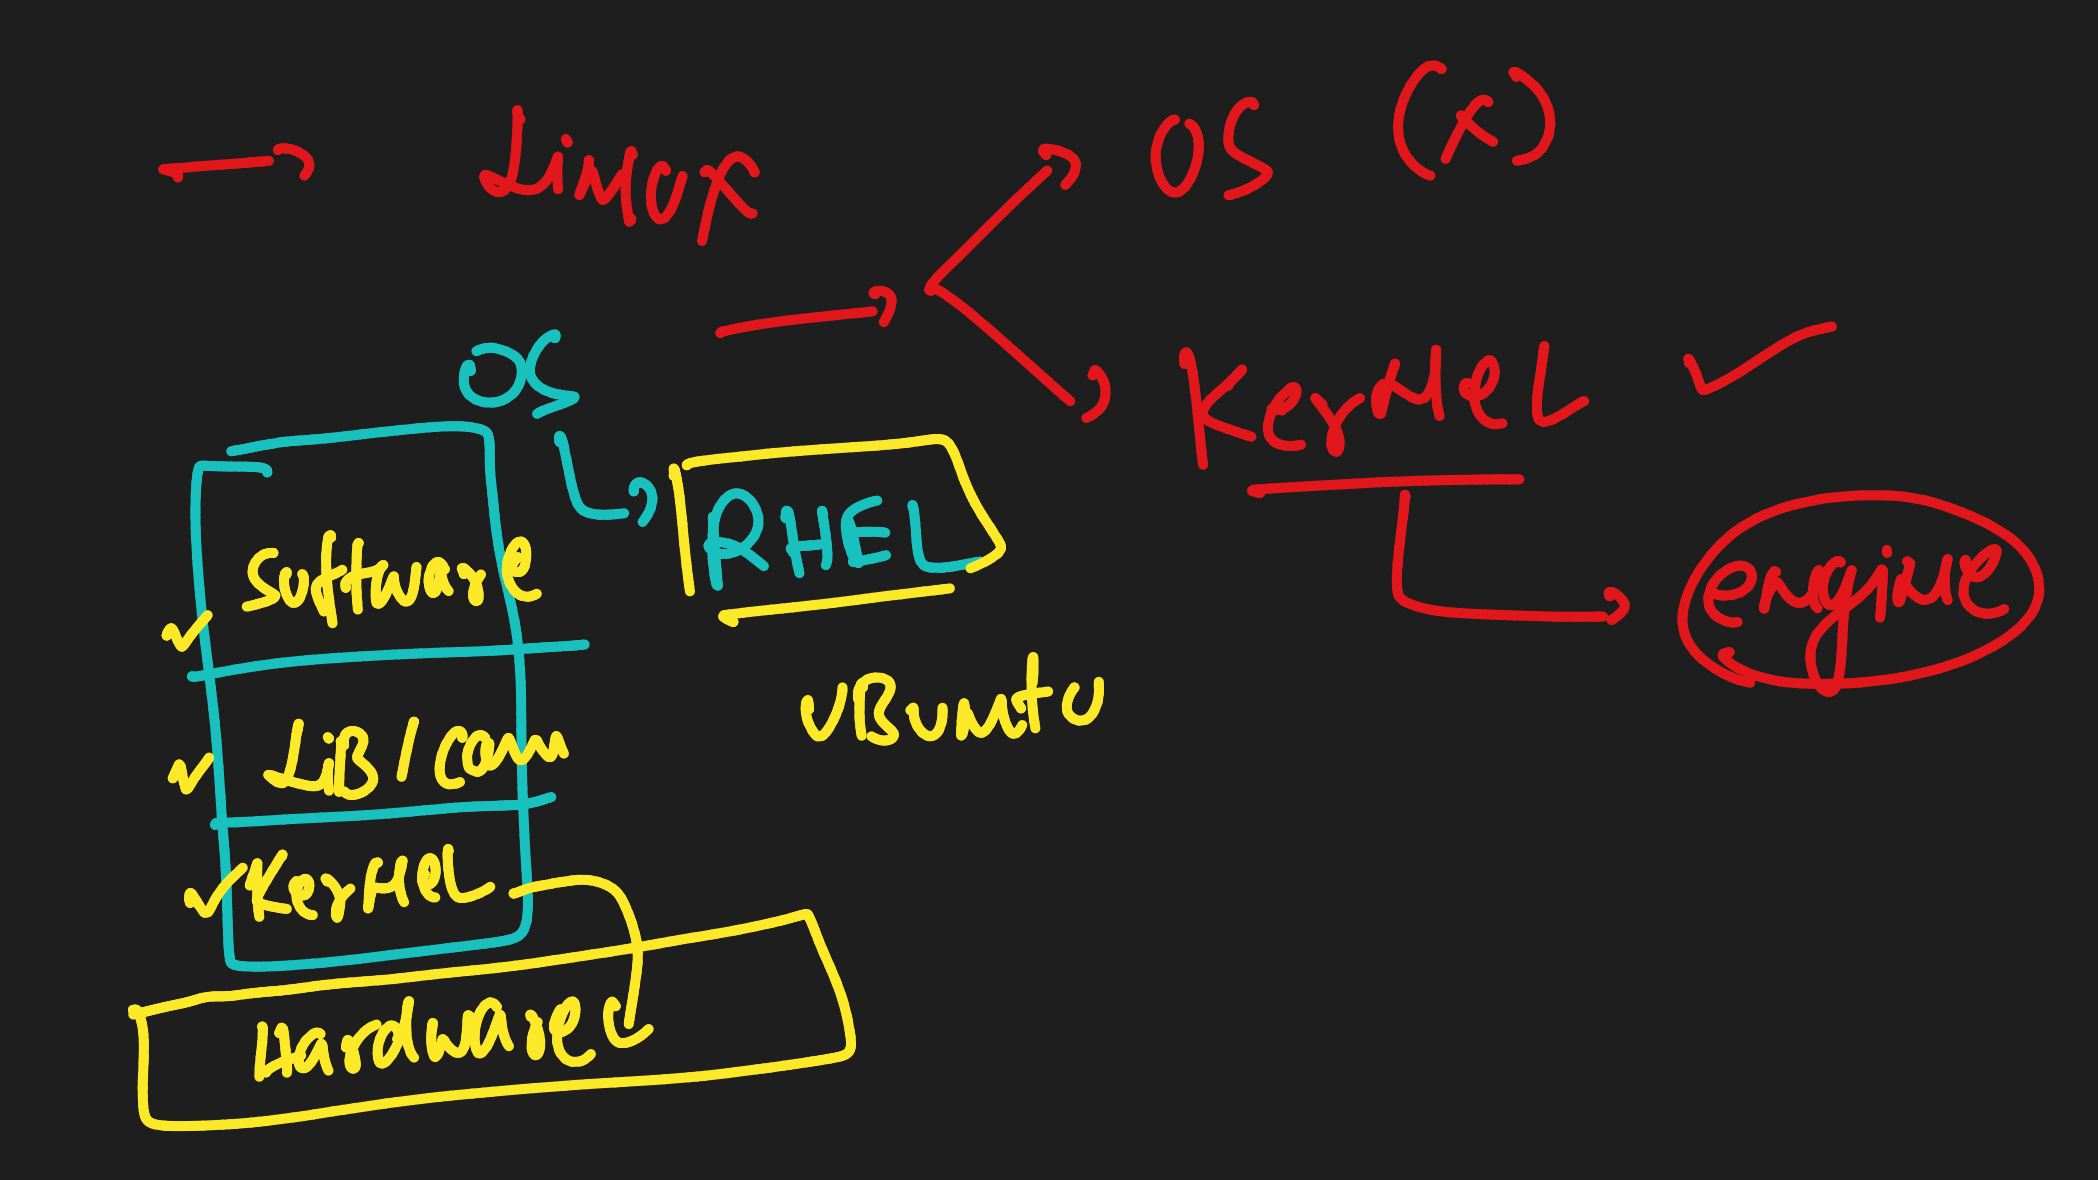 Linux
OS (x)
Kernel
engine
OS
RHEL
UBuntu
Software
LiB / Com
Kernel
Hardware